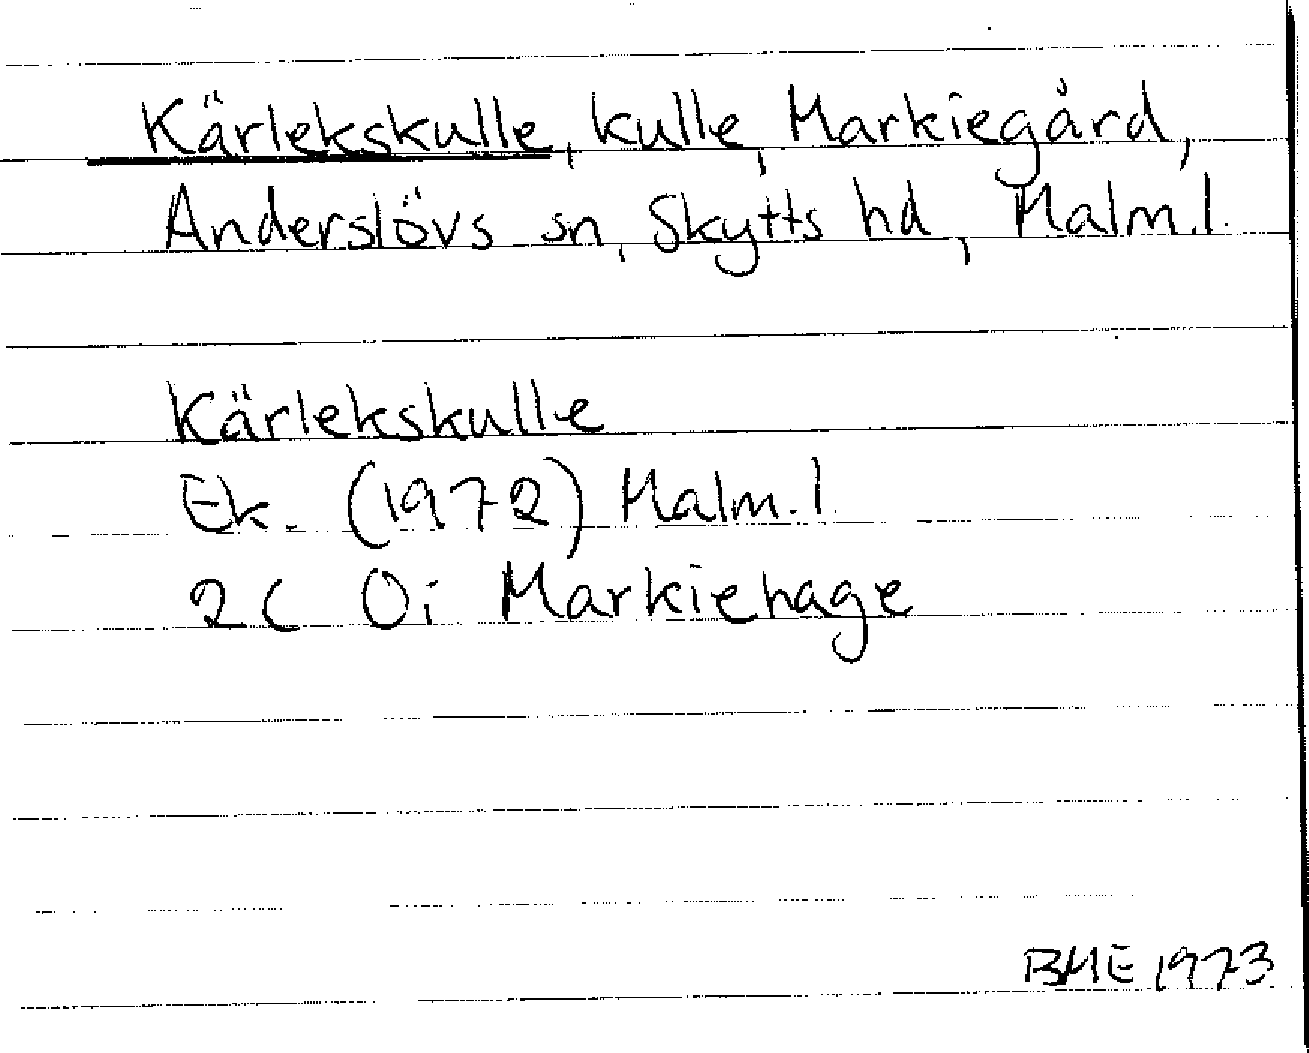 Kärlekskulle, kulle, Markiegård,
Anderslövs sn, Skytts hd, Malm.l.
Kärlekskulle
Ek. (1972) Malm.l
2C 0i Markiehage
BME 1973